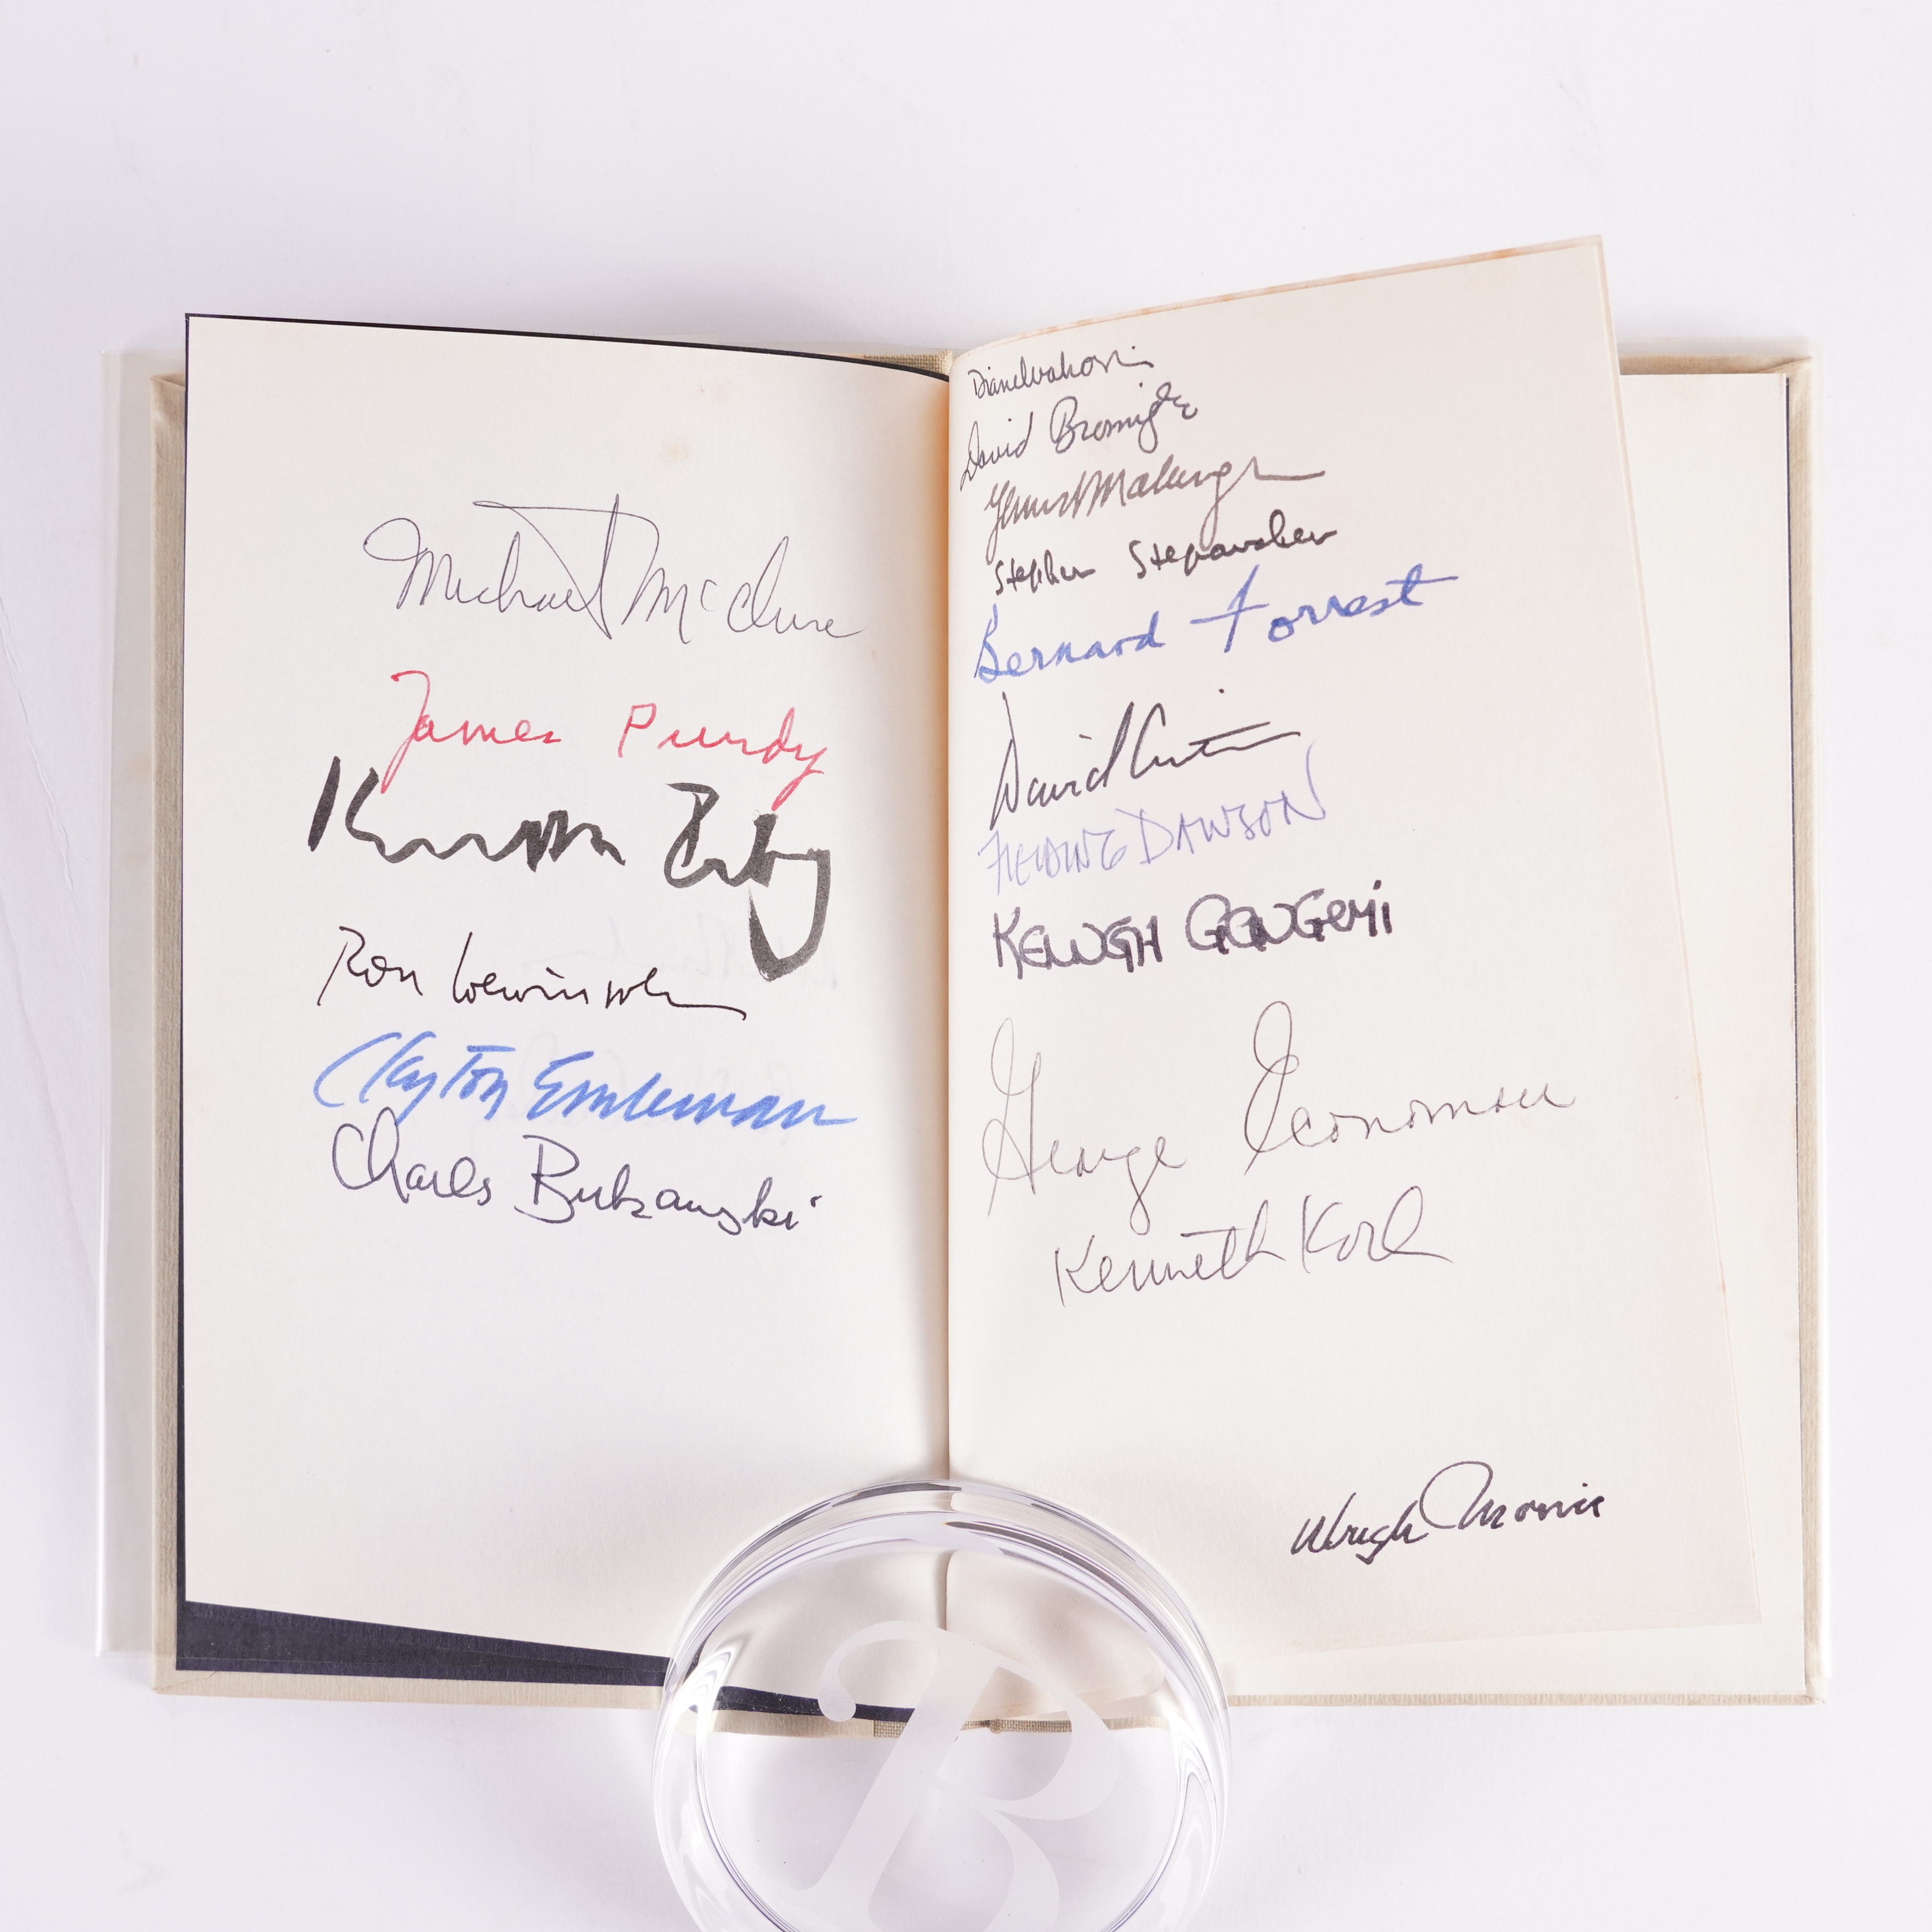 Michael McClure
James Purdy
Ron Loewinsohn
Clayton Eshleman
Charles Bukowski
Diane Wakoski
David Bromige
Gerard Malanga
Stephen Stepanchev
Bernard Forrest
David Antin
FIELDING DAWSON
KENNETH GANGEMI
George Economou
Kenneth Koch
Wright Morris
B